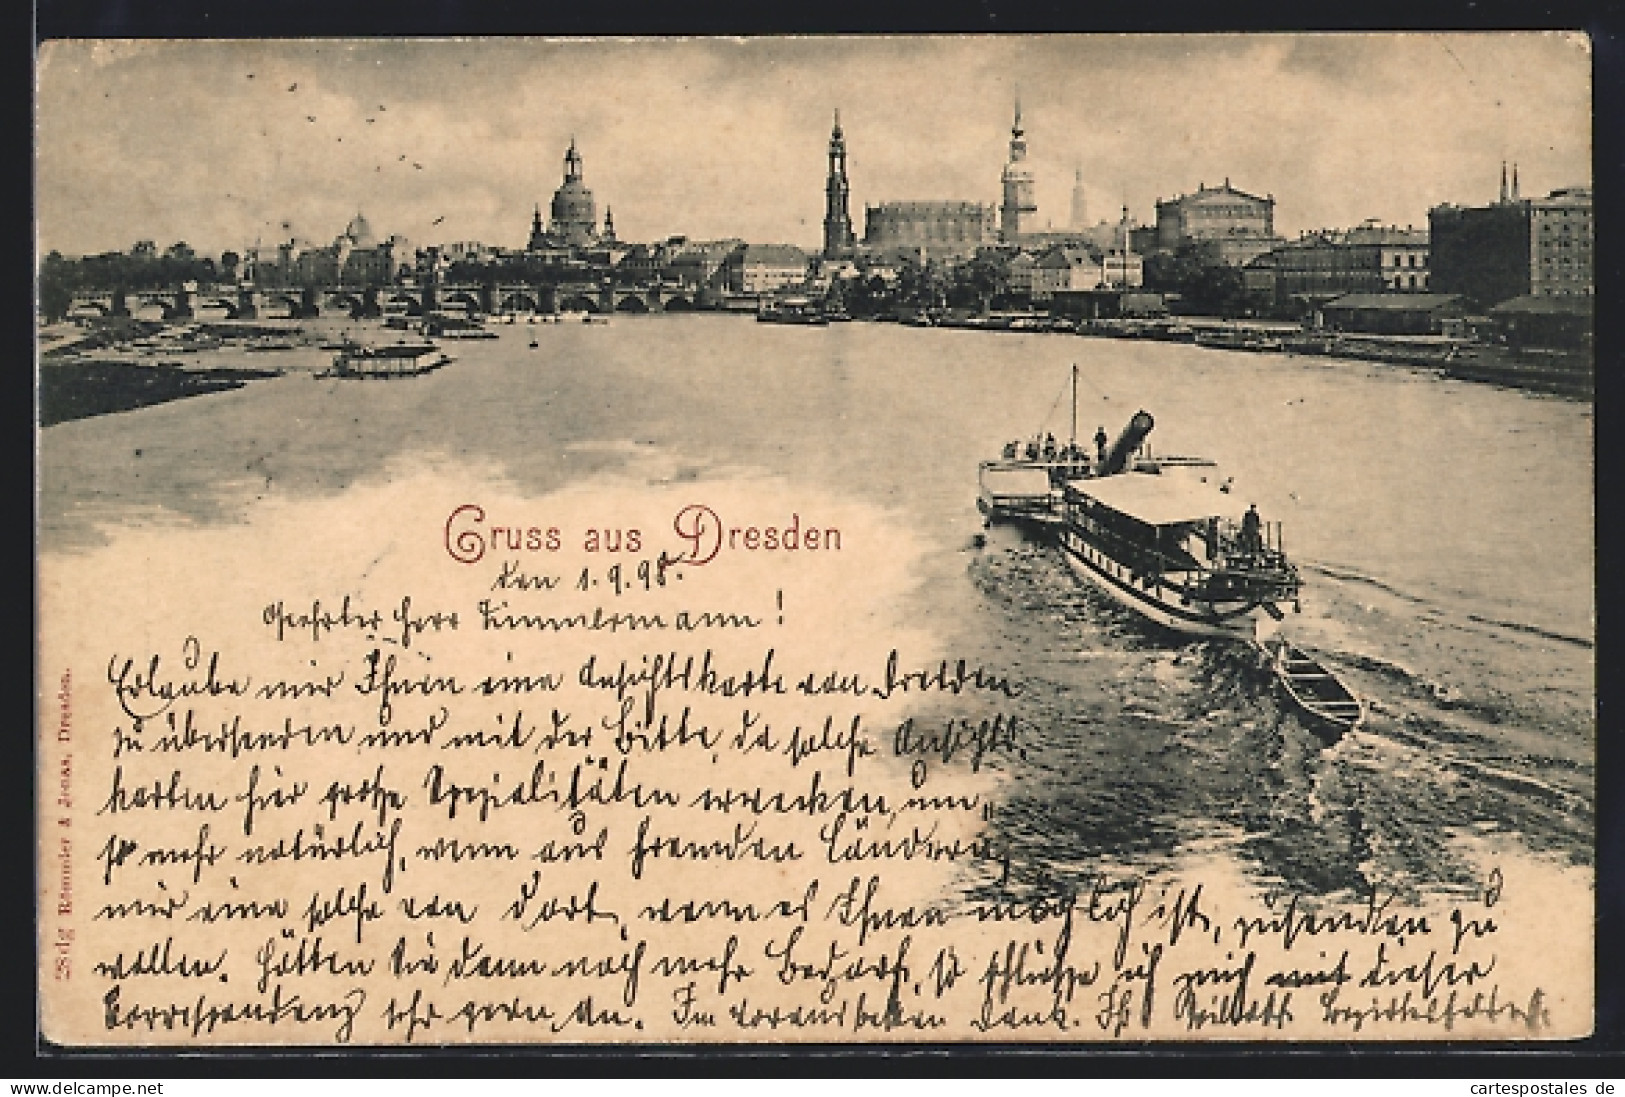 Gruss aus Dresden
den 1.9.98.
Geehrter Herr Zimmermann!
Erlaube mir Ihnen eine Ansichtskarte von Dresden
zu übersenden und mit der Bitte, da solche Ansichts-
karten hier große Spezialitäten erwecken, um-
so mehr natürlich, wenn aus fremden Ländern,
mir eine solche von dort, wenn es Ihnen möglich ist, zusenden zu
wollen. Hätten Sie denn noch mehr Bedarf, so schließe ich mich mit dieser
Correspondenz sehr gern an. Im voraus besten Dank. Ihr
28dg Römmler & Jonas, Dresden.
cartespostales de